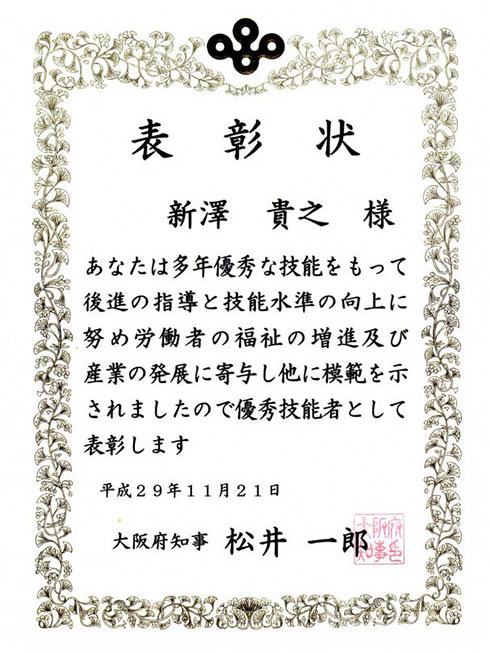 表彰状
新澤 貴之 様
あなたは多年優秀な技能をもって
後進の指導と技能水準の向上に
努め労働者の福祉の増進及び
産業の発展に寄与し他に模範を示
されましたので優秀技能者として
表彰します
平成29年11月21日
大阪府知事 松井 一郎
大阪府
知事印